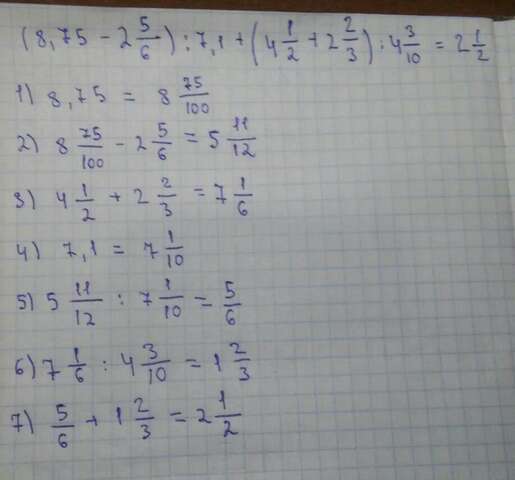 (8,75 - 2 5/6) : 7,1 + (4 1/2 + 2 2/3) : 4 3/10 = 2 1/2
1) 8,75 = 8 75/100
2) 8 75/100 - 2 5/6 = 5 11/12
3) 4 1/2 + 2 2/3 = 7 1/6
4) 7,1 = 7 1/10
5) 5 11/12 : 7 1/10 = 5/6
6) 7 1/6 : 4 3/10 = 1 2/3
7) 5/6 + 1 2/3 = 2 1/2